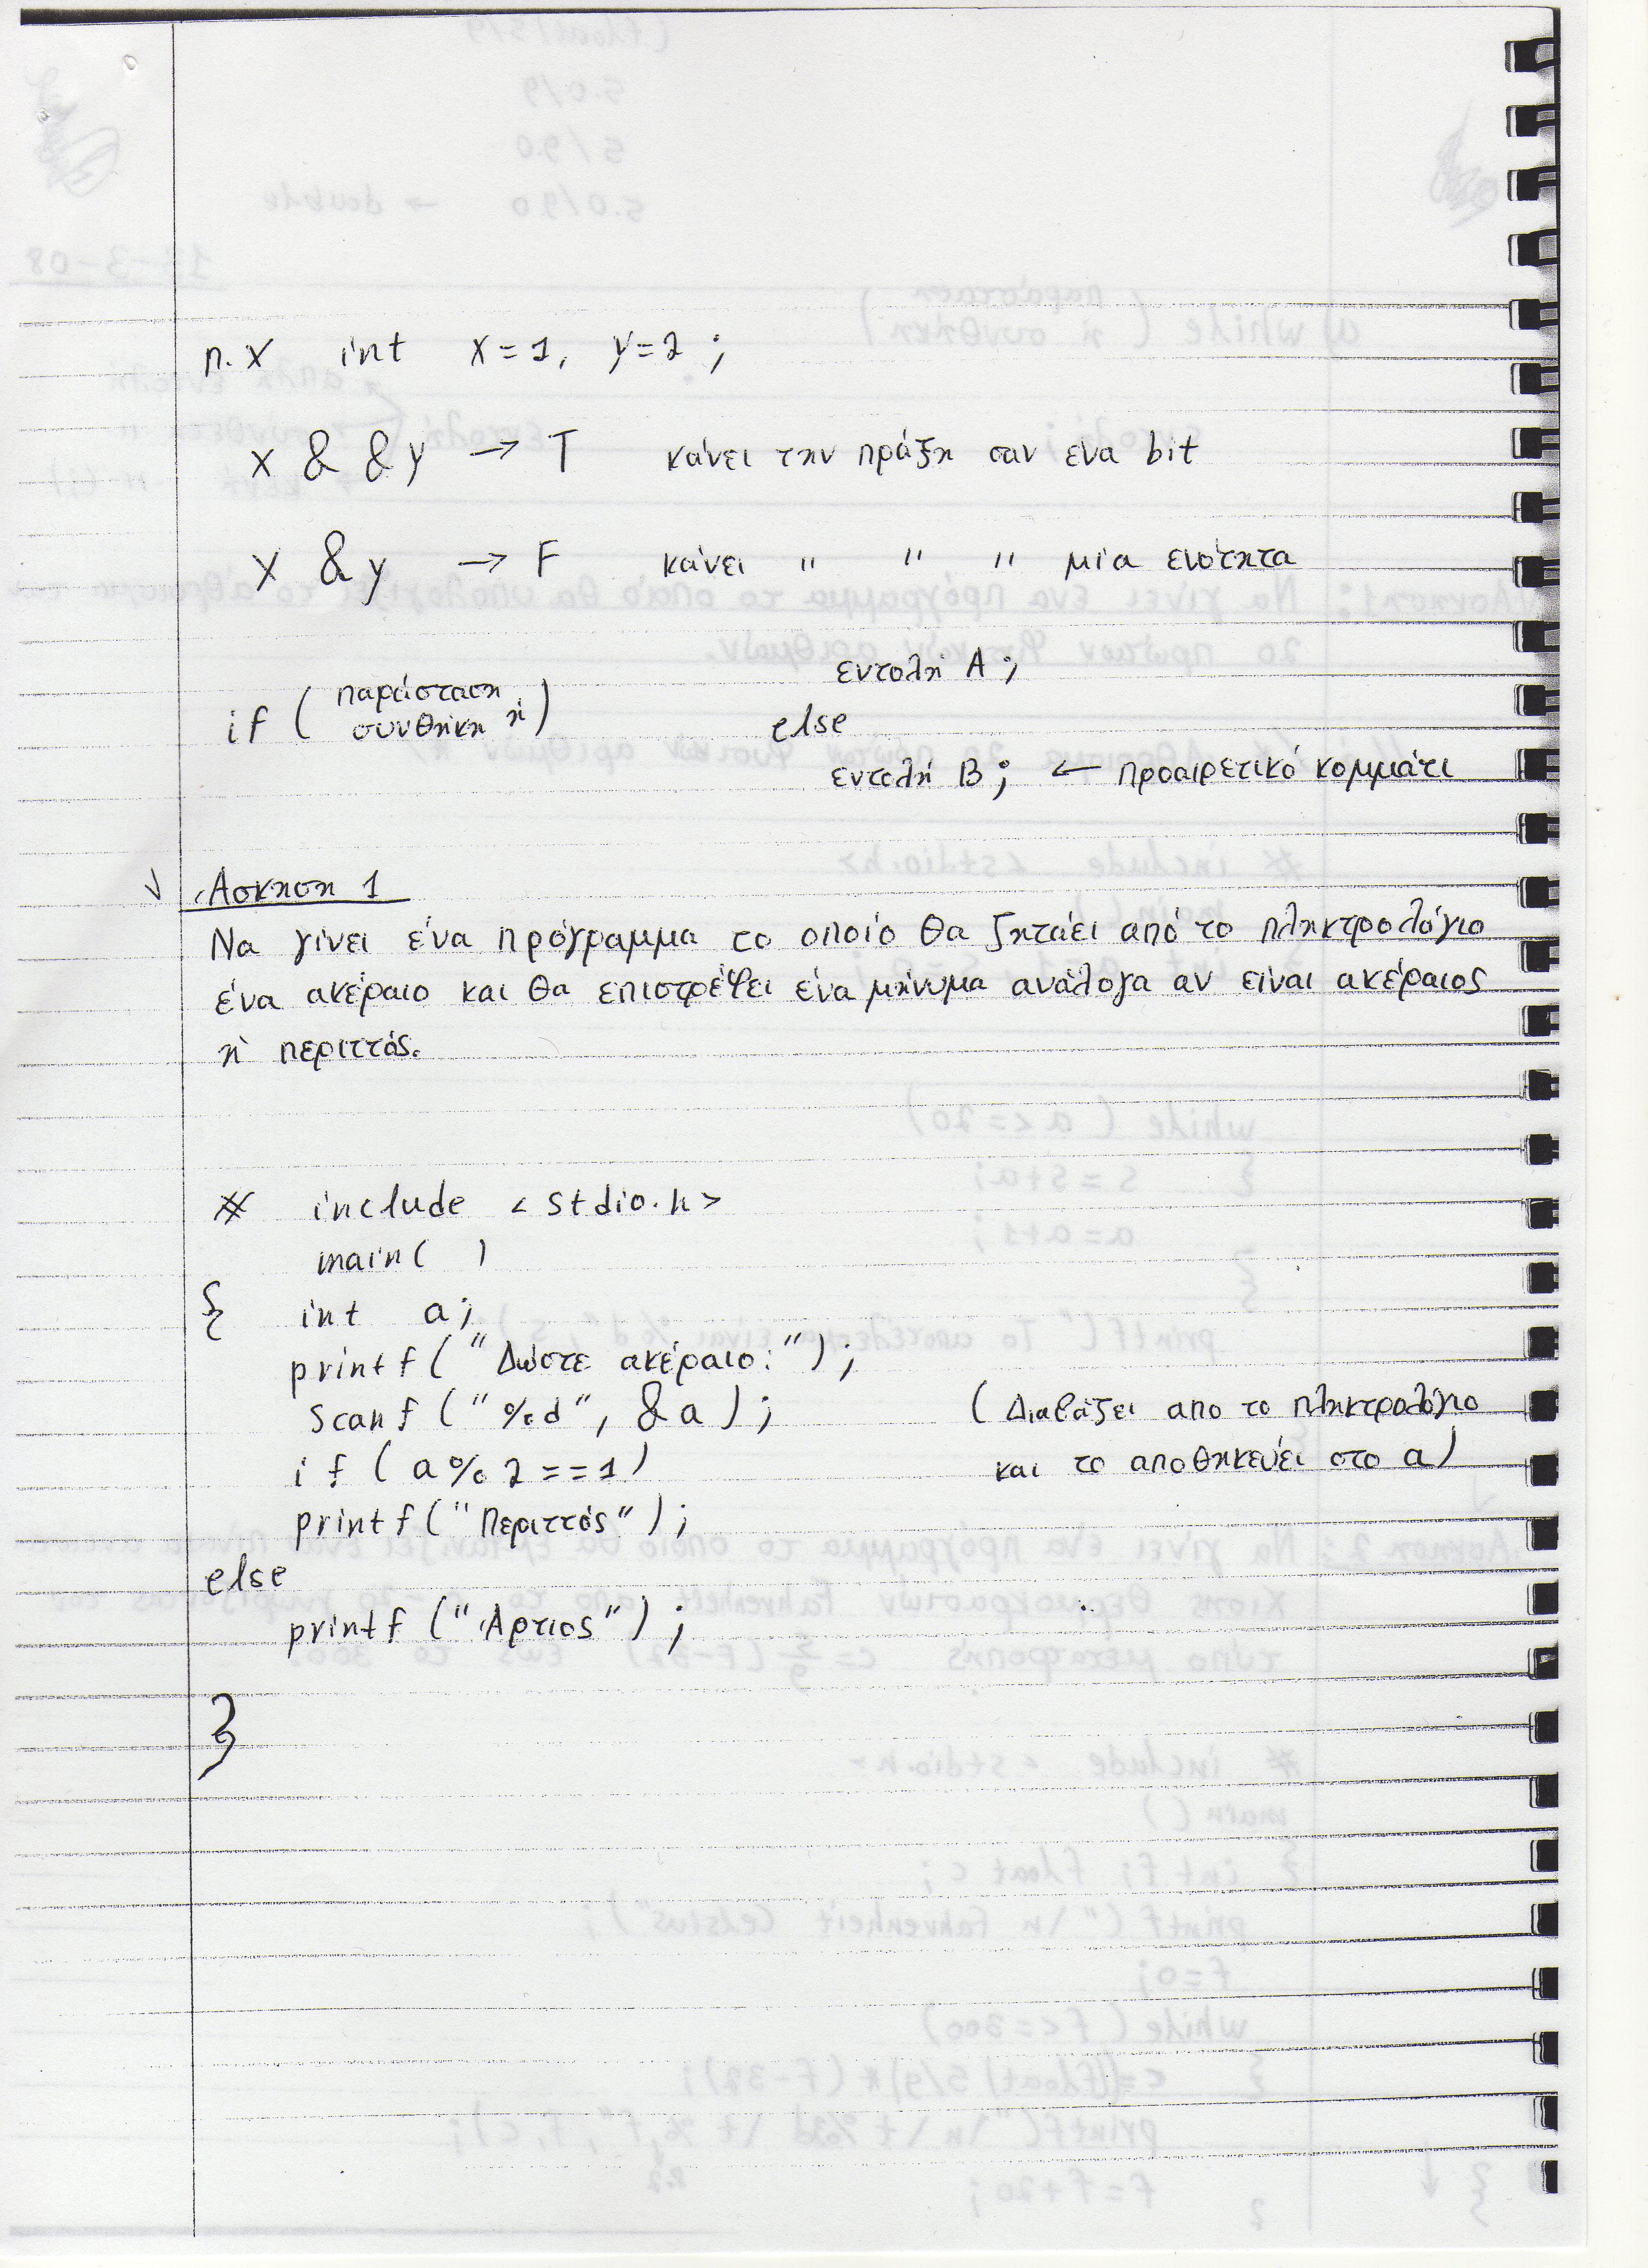 π.χ int x=1, y=2;
x & & y → T κάνει την πράξη σαν ένα bit
x & y → F κάνει " " " μία ενότητα
εντολή A;
if ( παράσταση ή
συνθήκη ) else
εντολή B; ← προαιρετικό κομμάτι
Άσκηση 1
Να γίνει ένα πρόγραμμα το οποίο θα ζητάει από το πληκτρολόγιο
ένα ακέραιο και θα επιστρέψει ένα μήνυμα ανάλογα αν είναι ακέραιος
ή περιττός.
# include <stdio.h>
main( )
{ int a;
printf("Δώστε ακέραιο:");
scanf("%d", &a); (Διαβάζει απο το πληκτρολόγιο
if (a%2==1) και το αποθηκεύει στο a)
printf("Περιττός");
else
printf("Άρτιος");
}